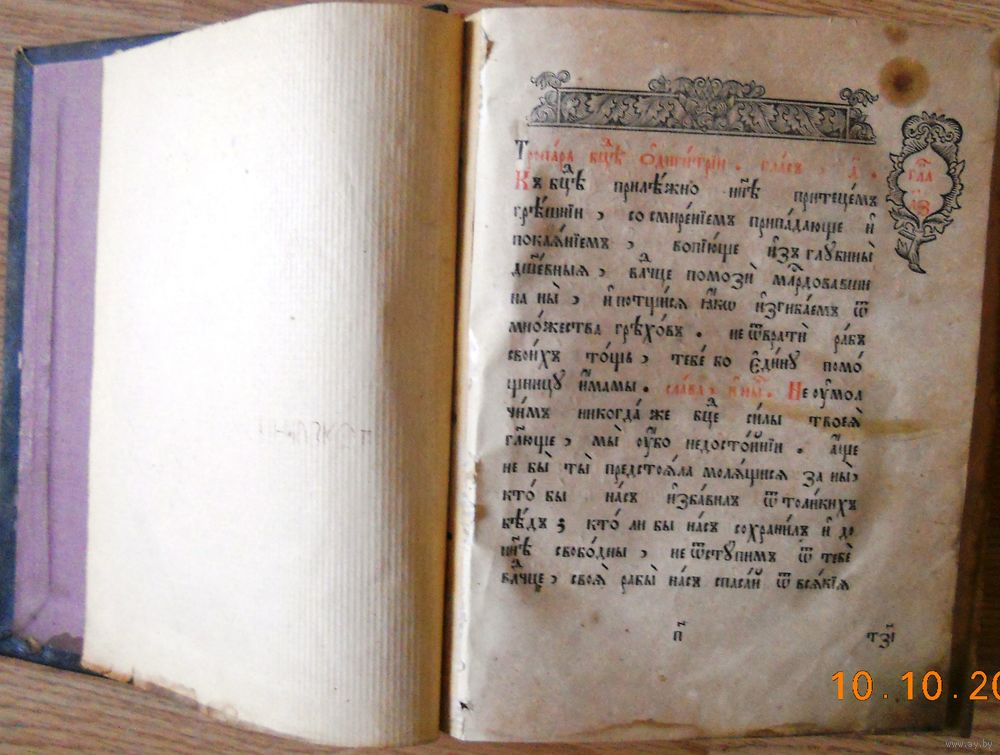 Тропа́ря бцⷣѣ ѻ҆диги́трїи . гла́съ , д҃ .
гла
Къ бцⷣѣ прилѣ́жно нн҃ѣ притеце́мъ
грѣ́шнїи , со смире́нїемъ припа́дающе и҆
покая́нїемъ , вопїю́ще и҆зъ глꙋбины̀
дш҃е́вныѧ , влⷣчце помозѝ млⷭ҇рдовавши
на ны̀ , и҆ потщи́сѧ ꙗ҆́кѡ и҆згиба́ем ѿ
мно́жества грѣхо́въ . не ѿвратѝ ра́бъ
свои́хъ то́щъ , тебе́ бо є҆ди́нꙋ помо́
щницꙋ и҆́мамы . сла́ва , и҆ ны́нѣ . Не ᲂу҆мол
чи́мъ никогда́ же бцⷣе си́лы твоеѧ̀
гл҃юще , мы̀ ᲂу҆́бо недосто́йнїи . а҆́ще
не бы̀ ты̀ предстоѧ́ла молѧ́щисѧ за ны̀ ,
кто́ бы на́съ и҆зба́вилъ ѿ толи́кихъ
бѣ́дъ ; кто́ ли бы на́съ сохрани́лъ и҆ до
нн҃ѣ свобо́дны , не ѿстꙋ́пимъ ѿ тебѐ
влⷣчце , своѧ̀ рабы̀ на́съ спаса́й ѿ всѧ́кїѧ
п҃
тз҃і
10.10.20
www.ay.by